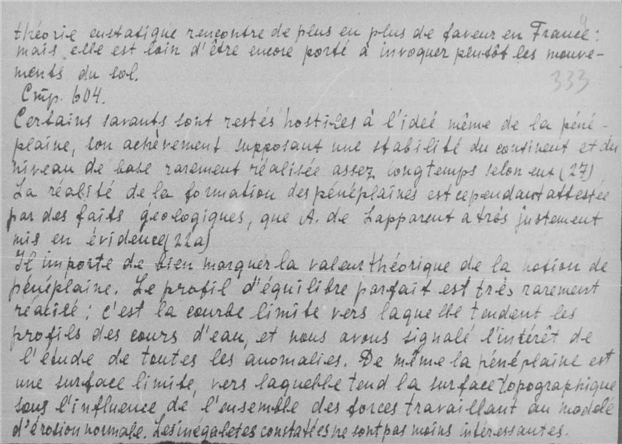 théorie eustatique rencontre de plus en plus de faveur en France:
mais elle est loin d'être encore porté à invoquer plutôt les mouve-
ments du sol.
333
Cmp. 604.
Certains savants sont restés hostiles à l'ideé même de la péné-
plaine, son achèvement supposant une stabilité du continent et du
niveau de base rarement réalisée assez longtemps selon eux (27)
La réalité de la formation des pénéplaines est cependant attestée
par des faits géologiques, que A. de Lapparent a très justement
mis en évidence (22a)
Il importe de bien marquer la valeur théorique de la notion de
pénéplaine. Le profil d'équilibre parfait est très rarement
réalité; c'est la courbe limite vers laquelle tendent les
profils des cours d'eau, et nous avous signalé l'intérêt de
l'étude de toutes les anomalies. De même la pénéplaine est
une surface limite, vers laquelle tend la surface topographique
sous l'influence de l'ensemble des forces travaillant au modelé
d'érosion normale. Les inégaletes constatées ne sont pas moins intéressantes.